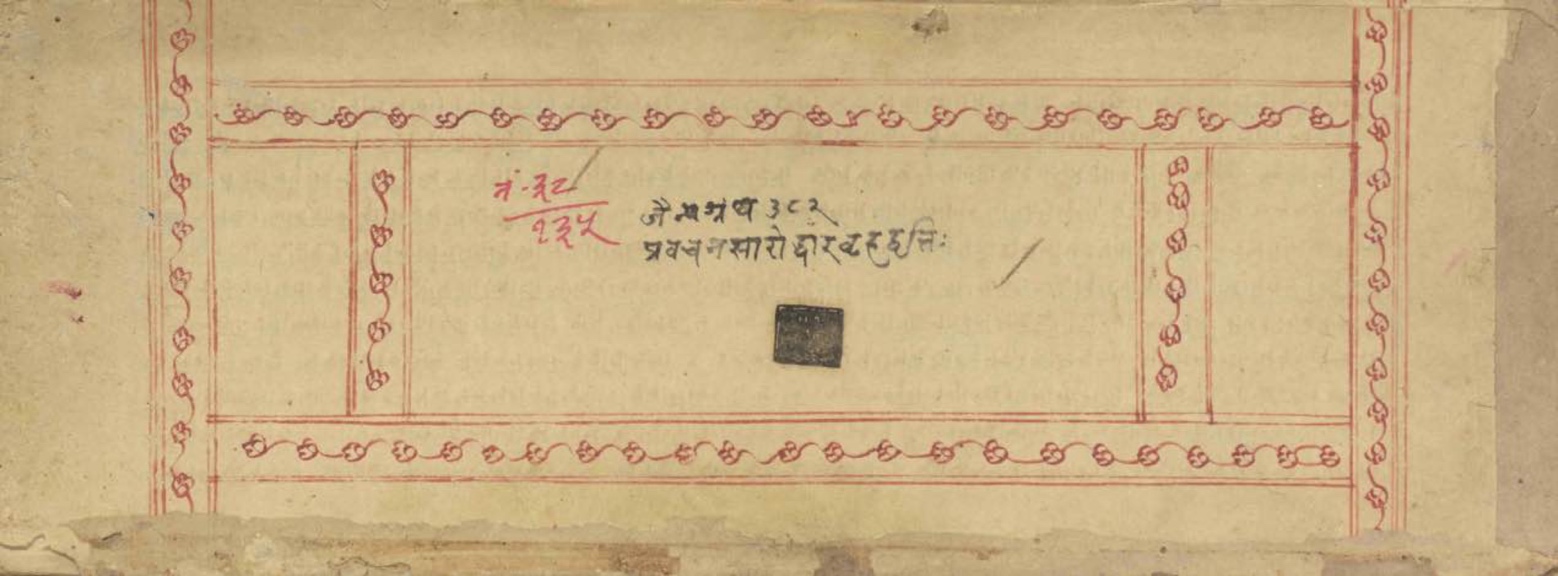 नं. ३८
१३५
जैन्यग्रंथ ३८२
प्रवचनसारोद्धारबृहद्वृत्तिः